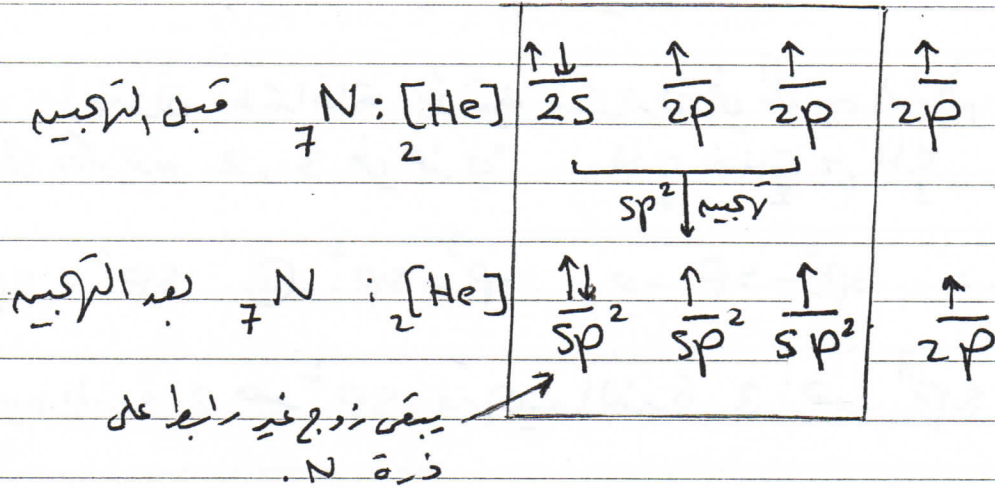 قبل التهجين ₇N: ₂[He] ↑↓ 2S ↑ 2p ↑ 2p ↑ 2p
sp² تهجين
بعد التهجين ₇N : ₂[He] ↑↓ sp² ↑ sp² ↑ sp² ↑ 2p
يبقى زوج غير رابط على
ذرة N.